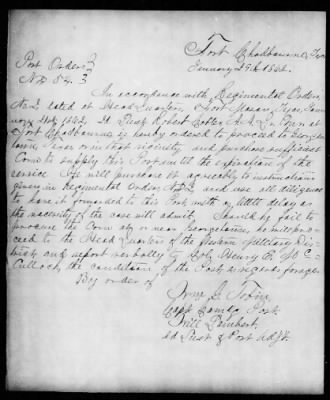 Fort Chadbourne, Texas
January 29th 1862.
Post Orders }
No. 54. }
In accordance with Regimental Orders,
No 2 dated at Head Quarters, Fort Mason, Texas, Jan
1862, 2d Lieut Robert
Fort Chadbourne is hereby ordered to proceed to George
town, Texas or in that vicinity and purchase sufficient
Corn to supply this Post until the expiration of the
service. He will purchase it agreeably to instructions
given in Regimental Orders No 2 and use all diligence
to have it forwarded to this Post with as little delay as
the necessity of the case will admit. Should he fail to
procure the Corn at or near Georgetown, he will pro=
ceed to the Head Quarters of the Military Dis=
trict and report verbally to Col. Henry E. Mc=
Culloch, the condition of the Post as regards forage.
By order of
Tobin
Capt Comdg Post
Will Lambert,
2d Lieut & Post Adjt.